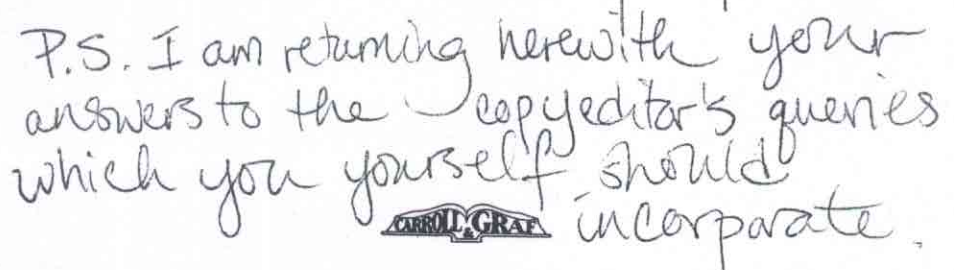 P.S. I am returning herewith your
answers to the copyeditor's queries
which you yourself should
incorporate.
CARROLL & GRAF